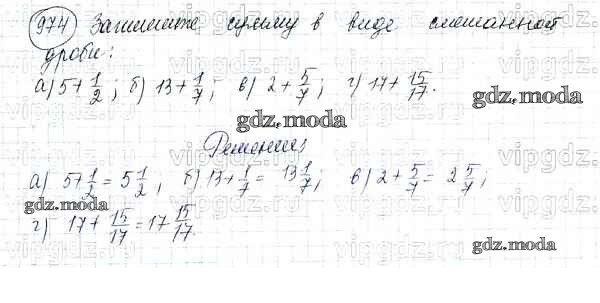 974 Запишите сумму в виде смешанной
дроби:
а) 5+1/2; б) 13+1/7; в) 2+5/7; г) 17+15/17.
gdz.moda
gdz.moda
Решение
а) 5+1/2=5 1/2; б) 13+1/7=13 1/7; в) 2+5/7=2 5/7;
gdz.moda
г) 17+15/17=17 15/17.
gdz.moda